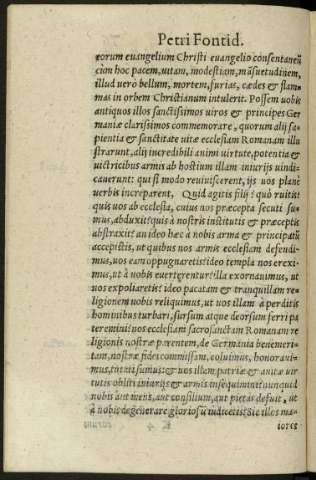 Petri Fontid.
eorum euangelium Christi euangelio consentaneũ
cùm hoc pacem, uitam, modestiam, mãsuetudinem,
illud uerò bellum, mortem, furias, cædes & flam-
mas in orbem Christianum intulerit. Possem uobis
antiquos illos sanctissimos uiros & principes Ger
maniæ clarissimos commemorare, quorum alij sa-
pientia & sanctitate uitæ ecclesiam Romanam illu
strarunt, alij incredibili animi uirtute, potentia &
uictricibus armis ab hostium illam iniurijs uindi-
cauerunt: qui si modo reuiuiscerent, ijs uos planè
uerbis increparent, Quid agitis filij? quò ruitis?
quis uos ab ecclesia, cuius nos præcepta secuti su-
mus, abduxit? quis à nostris institutis & præceptis
abstraxit? an ideo hæc à nobis arma & principatũ
accepistis, ut quibus nos armis ecclesiam defendi-
mus, uos eam oppugnaretis? ideo templa nos erexi-
mus, ut à uobis euerterentur? illa exornauimus, ut
uos expoliaretis? ideo pacatam & tranquillam re-
ligionem uobis reliquimus, ut uos illam à perditis
hominibus turbari, sursum atque deorsum ferri pa
teremini? nos ecclesiam sacrosanctam Romanam re
ligionis nostræ parentem, de Germania benemeri-
tam, nostræ fidei commissam, coluimus, honoraui-
mus, tutati sumus: & uos illam patriæ & auitæ uir
tutis obliti iniurijs & armis insequimini? nunquid
nobis aut mens, aut consilium, aut pietas defuit, ut
à nobis degenerare gloriosũ iudicetis? Sic illos ma-
iores